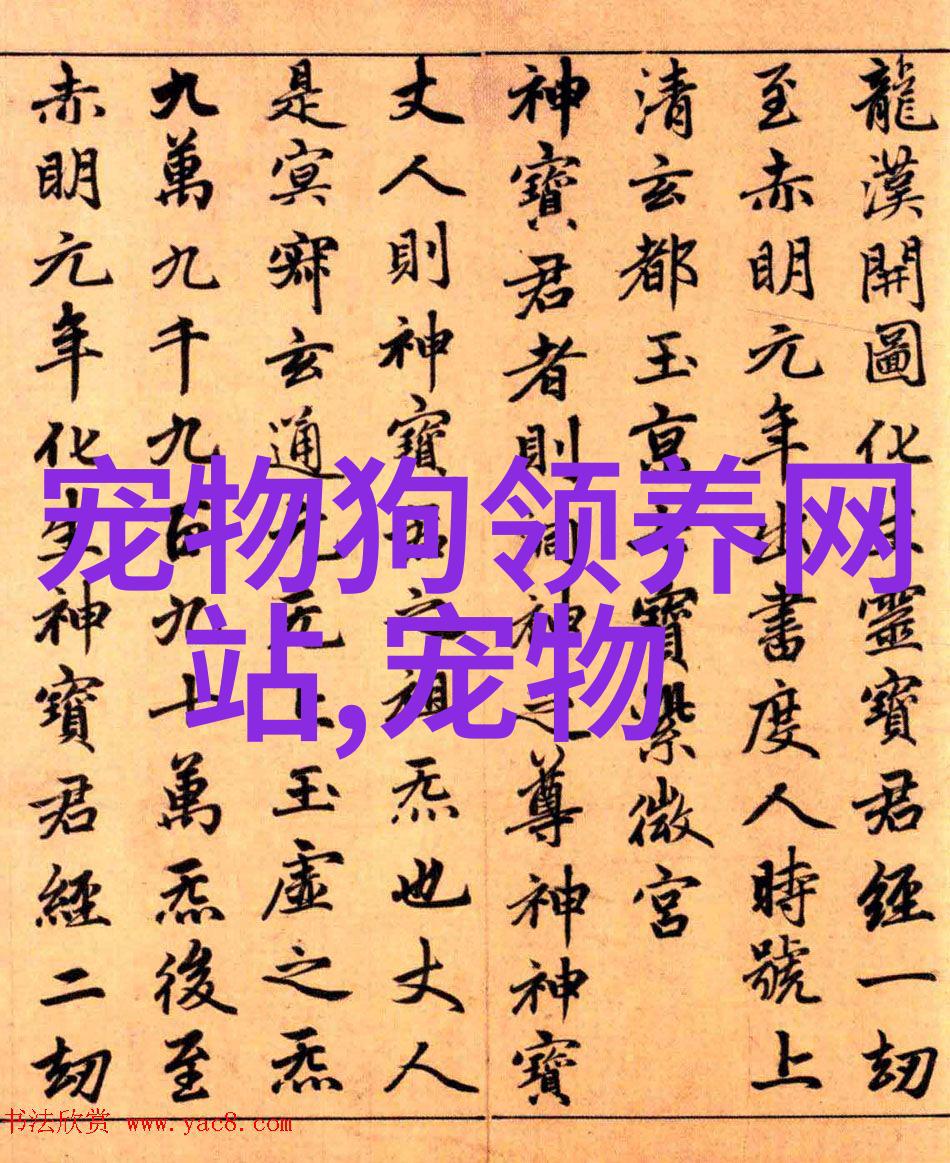 龍漢開圖化生靈寶君經一劫
至赤明元年出書度人時號上
清玄都玉京七寶紫微宮
神寶君者則洞神之尊神神寶
丈人則神寶君之祖炁也丈人
是冥寂玄通元无上玉虛之炁
九萬九千九百九十萬炁後至
赤明元年化生神寶君經二劫
宠物狗领养网
站,宠物
书法欣赏 www.yac8.com